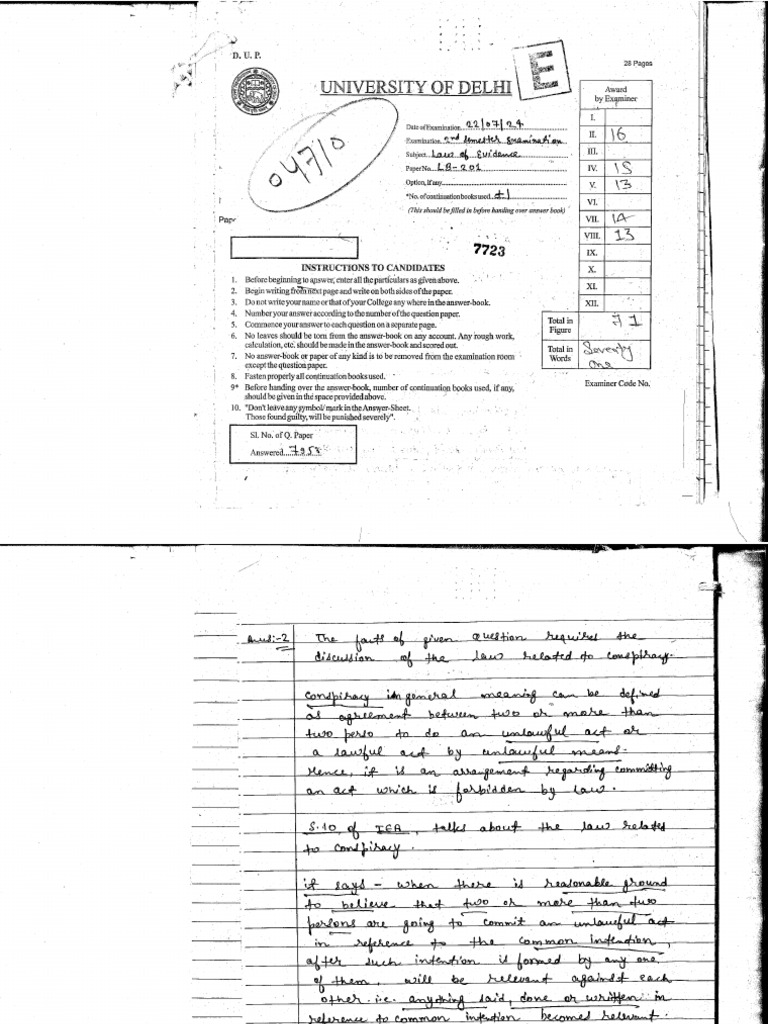 D. U. P.
28 Pages
UNIVERSITY OF DELHI
E
Award
by Examiner
04710
Date of Examination 22/07/24
Examination 2nd semester Examination
Subject Law of Evidence
Paper No. LB-201
Option, if any
*No. of continuation books used +1
(This should be filled in before handing over answer book)
I.
II. 16
III.
IV. 15
V. 13
VI.
VII. 14
VIII. 13
IX.
X.
XI.
XII.
Total in
Figure 71
Total in
Words Seventy
one
Examiner Code No.
7723
INSTRUCTIONS TO CANDIDATES
1. Before beginning to answer, enter all the particulars as given above.
2. Begin writing from next page and write on both sides of the paper.
3. Do not write your name or that of your College any where in the answer-book.
4. Number your answer according to the number of the question paper.
5. Commence your answer to each question on a separate page.
6. No leaves should be torn from the answer-book on any account. Any rough work,
calculation, etc. should be made in the answer-book and scored out.
7. No answer-book or paper of any kind is to be removed from the examination room
except the question paper.
8. Fasten properly all continuation books used.
9* Before handing over the answer-book, number of continuation books used, if any,
should be given in the space provided above.
10. "Don't leave any symbol/mark in the Answer-Sheet.
Those found guilty, will be punished severely".
Sl. No. of Q. Paper
Answered
Ans:-2 The facts of given question requires the
discussion of the law related to conspiracy.
conspiracy in general meaning can be defined
as agreement between two or more than
two perso to do an unlawful act or
a lawful act by unlawful means.
Hence, it is an arrangement regarding committing
an act which is forbidden by law.
S.10 of IEA, talks about the law related
to conspiracy.
it says - when there is reasonable ground
to believe that two or more than two
persons are going to commit an unlawful act
in reference to the common intention,
after such intention is formed by any one
of them, will be relevant against each
other i.e. anything said, done or written in
reference to common intention becomes relevant.